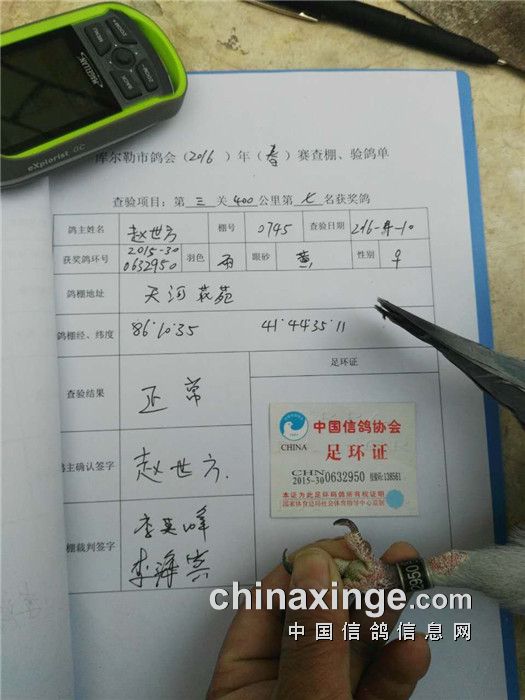 MAGELLAN
MENU
BACK
eXplorist GC
库尔勒市鸽会(2016)年(春)赛查棚、验鸽单
查验项目:第 三 关 400 公里第 七 名获奖鸽
鸽主姓名 赵世方 棚号 0745 查验日期 216-4-10
获奖鸽环号 2015-30 0632950 羽色 雨 眼砂 黄 性别 ♀
鸽棚地址 天河花苑
鸽棚经、纬度 86°10'35 41°44'35"11
查验结果 正常
足环证
中国信鸽协会
CHINA
足环证
CHN
2015-30 0632950 密码:138561
本证为此足环码鸽所有权证明
国家体育总局社会体育指导中心监制
鸽主确认签字 赵世方.
棚裁判签字 李英峰
李海宾
chinaxinge.com
中国信鸽信息网